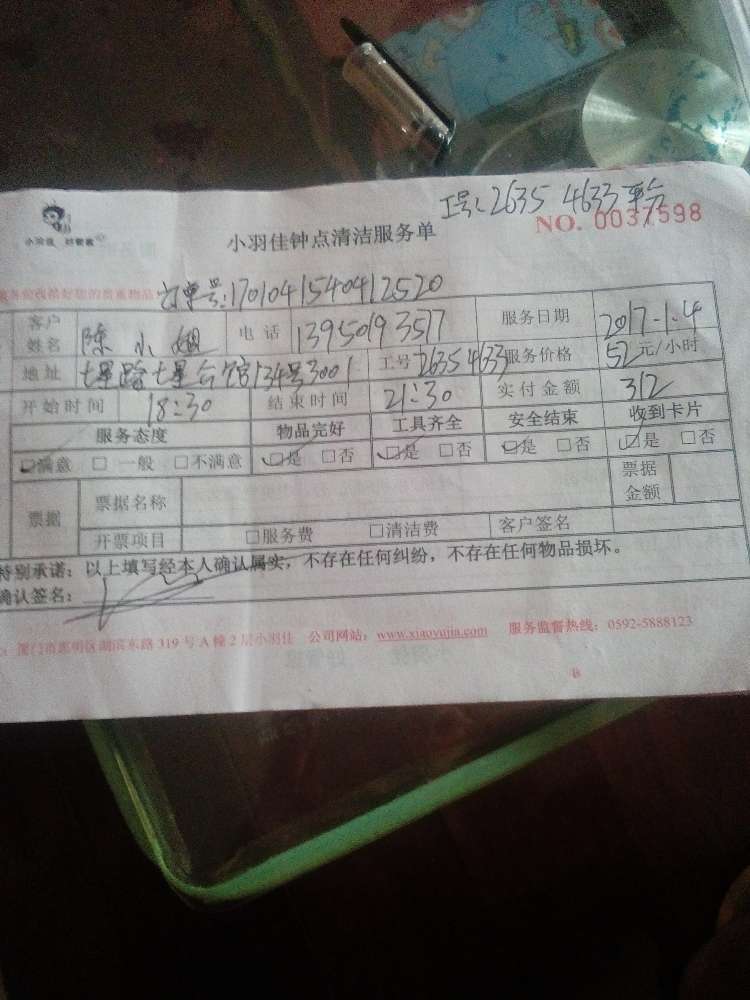 工号:2635 4633平台
小羽佳 好管家
小羽佳钟点清洁服务单
NO. 0037598
订单号:170104154041 2520
客户姓名 陈小姐 电话 13950193577 服务日期 2017-1-4
地址 七星路七星公馆134号3001 工号 2635 4633 服务价格 52 元/小时
开始时间 18:30 结束时间 21:30 实付金额 312
服务态度 物品完好 工具齐全 安全结束 收到卡片
☑满意 □ 一般 □不满意 ☑是 □否 ☑是 □否 ☑是 □否 ☑是 □否
票据 票据名称 票据金额
开票项目 □服务费 □清洁费 客户签名
特别承诺:以上填写经本人确认属实,不存在任何纠纷,不存在任何物品损坏。
确认签名:
厦门市思明区湖滨东路 319 号 A 幢 2 层小羽佳 公司网站:www.xiaoyujia.com 服务监督热线:0592-5888123
B